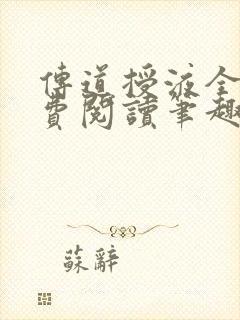 傳道授液全
費閱讀筆趣
蘇辭